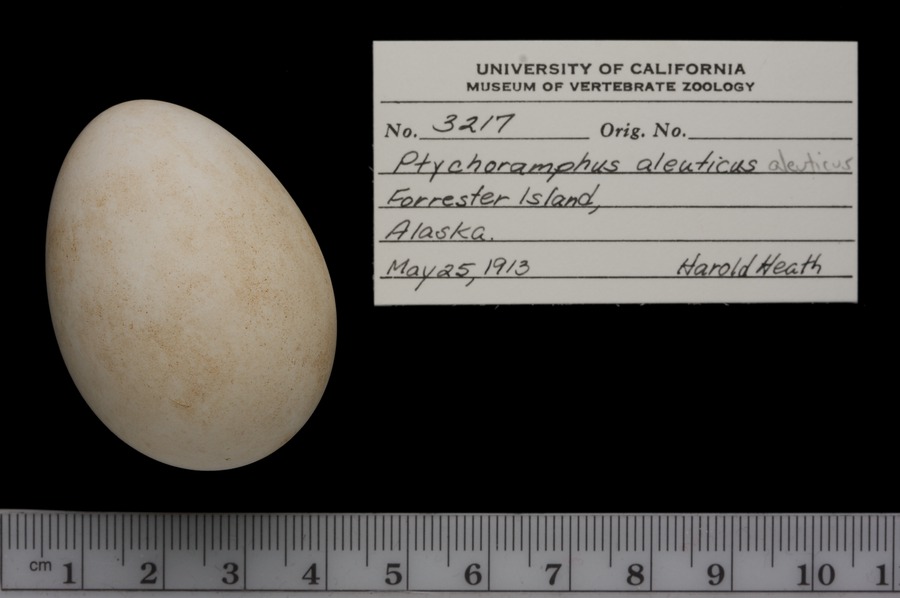 UNIVERSITY OF CALIFORNIA
MUSEUM OF VERTEBRATE ZOOLOGY
No. 3217 Orig. No.
Ptychoramphus aleuticus aleuticus
Forrester Island,
Alaska.
May 25, 1913 Harold Heath
cm 1 2 3 4 5 6 7 8 9 10 1